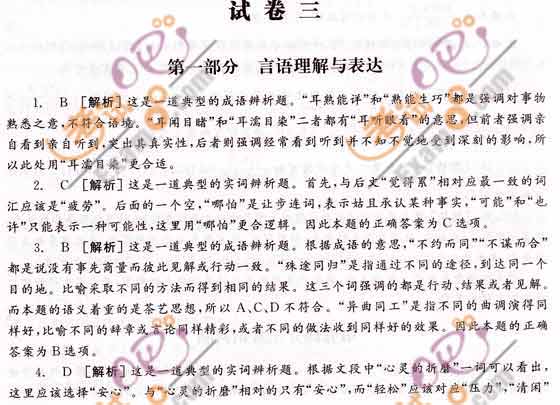 试卷三
第一部分 言语理解与表达
1. B [解析]这是一道典型的成语辨析题。“耳熟能详”和“熟能生巧”都是强调对事物
熟悉之意,不符合语境。“耳闻目睹”和“耳濡目染”二者都有“耳听眼看”的意思,但前者强调亲
自看到亲自听到,突出其真实性,后者则强调经常看到听到并不知不觉地受到深刻的影响,所
以此处用“耳濡目染”更合适。
2. C [解析]这是一道典型的实词辨析题。首先,与后文“觉得累”相对应最一致的词
汇应该是“疲劳”。后面的一个空,“哪怕”是让步连词,表示姑且承认某种事实,“可能”和“也
许”只能表示一种可能性,这里用“哪怕”更合逻辑。因此本题的正确答案为C选项。
3. B [解析]这是一道典型的成语辨析题。根据成语的意思,“不约而同”“不谋而合”
都是说没有事先商量而彼此见解或行动一致。“殊途同归”是指通过不同的途径,到达同一个
目的地。比喻采取不同的方法而得到相同的结果。这三个词强调的都是行动、结果或者见解。
而本题的语义着重的是茶艺思想,所以A、C、D不符合。“异曲同工”是指不同的曲调演得同
样好,比喻不同的辞章或言论同样精彩,或者不同的做法收到同样好的效果。因此本题的正确
答案为B选项。
4. D [解析]这是一道典型的实词辨析题。根据文段中“心灵的折磨”一词可以看出,
这里应该选择“安心”。与“心灵的折磨”相对的只有“安心”,而“轻松”应该对应“压力”,“清闲”